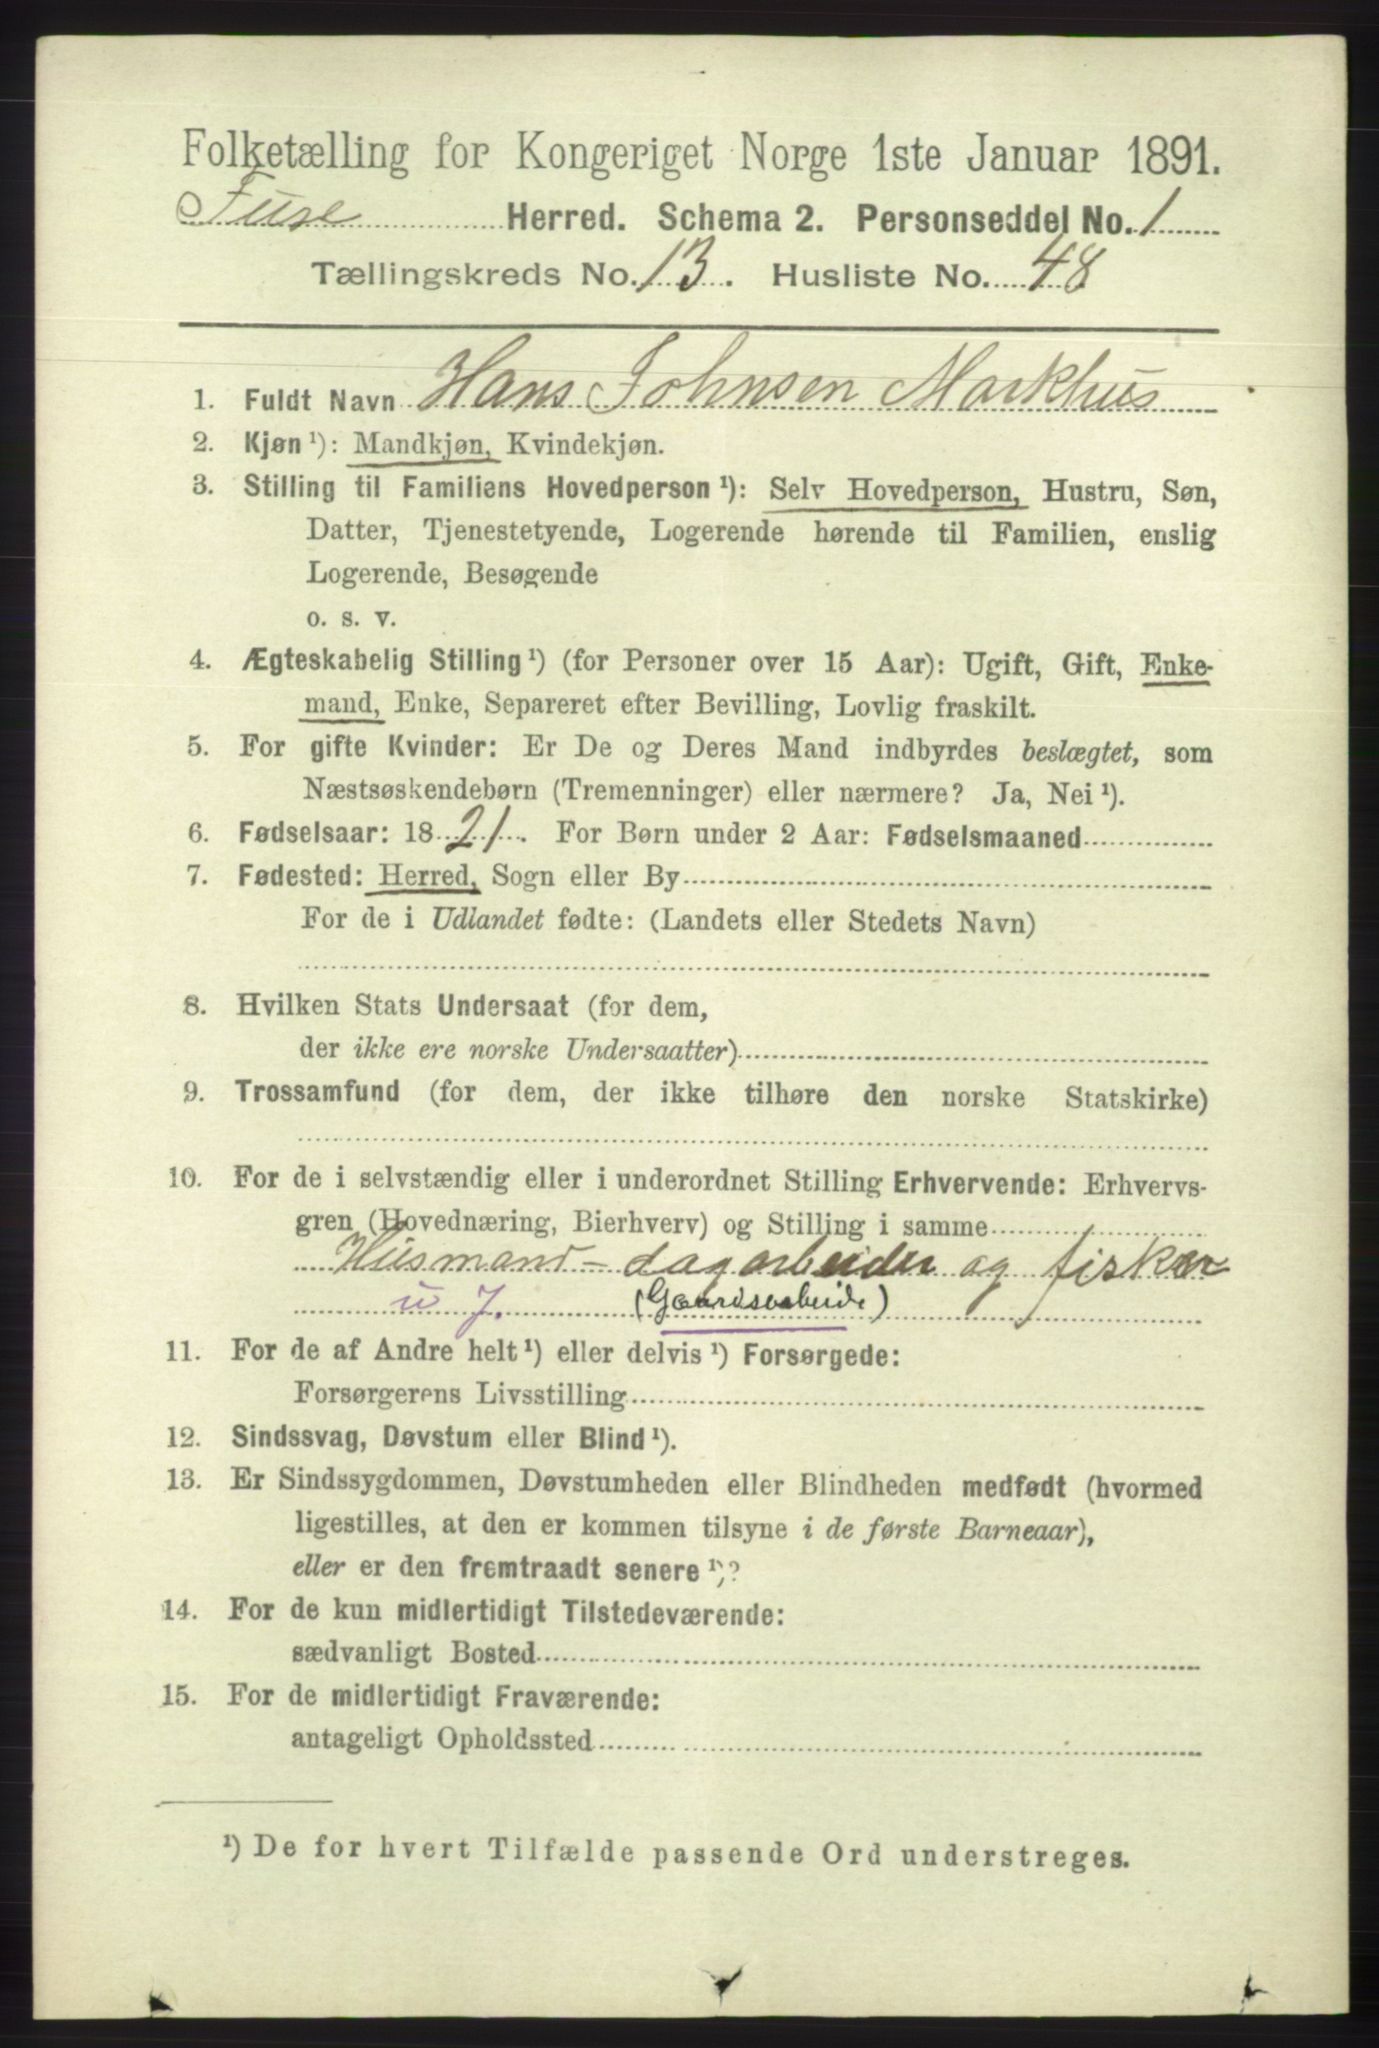 Folketælling for Kongeriget Norge 1ste Januar 1891.
Fuse Herred. Schema 2. Personseddel No. 1
Tællingskreds No. 13. Husliste No. 48
1. Fuldt Navn Hans Johnsen Markhus
2. Kjøn ¹): Mandkjøn, Kvindekjøn.
3. Stilling til Familiens Hovedperson ¹): Selv Hovedperson, Hustru, Søn,
Datter, Tjenestetyende, Logerende hørende til Familien, enslig
Logerende, Besøgende
o. s. v.
4. Ægteskabelig Stilling ¹) (for Personer over 15 Aar): Ugift, Gift, Enke-
mand, Enke, Separeret efter Bevilling, Lovlig fraskilt.
5. For gifte Kvinder: Er De og Deres Mand indbyrdes beslægtet, som
Næstsøskendebørn (Tremenninger) eller nærmere? Ja, Nei ¹).
6. Fødselsaar: 1821. For Børn under 2 Aar: Fødselsmaaned
7. Fødested: Herred, Sogn eller By
For de i Udlandet fødte: (Landets eller Stedets Navn)
8. Hvilken Stats Undersaat (for dem,
der ikke ere norske Undersaatter)
9. Trossamfund (for dem, der ikke tilhøre den norske Statskirke)
10. For de i selvstændig eller i underordnet Stilling Erhvervende: Erhvervs-
gren (Hovednæring, Bierhverv) og Stilling i samme
Husmand - dagarbeider og fisker
u J. (Gaardsarbeide)
11. For de af Andre helt ¹) eller delvis ¹) Forsørgede:
Forsørgerens Livsstilling
12. Sindssvag, Døvstum eller Blind ¹).
13. Er Sindssygdommen, Døvstumheden eller Blindheden medfødt (hvormed
ligestilles, at den er kommen tilsyne i de første Barneaar),
eller er den fremtraadt senere ¹)?
14. For de kun midlertidigt Tilstedeværende:
sædvanligt Bosted
15. For de midlertidigt Fraværende:
antageligt Opholdssted
¹) De for hvert Tilfælde passende Ord understreges.